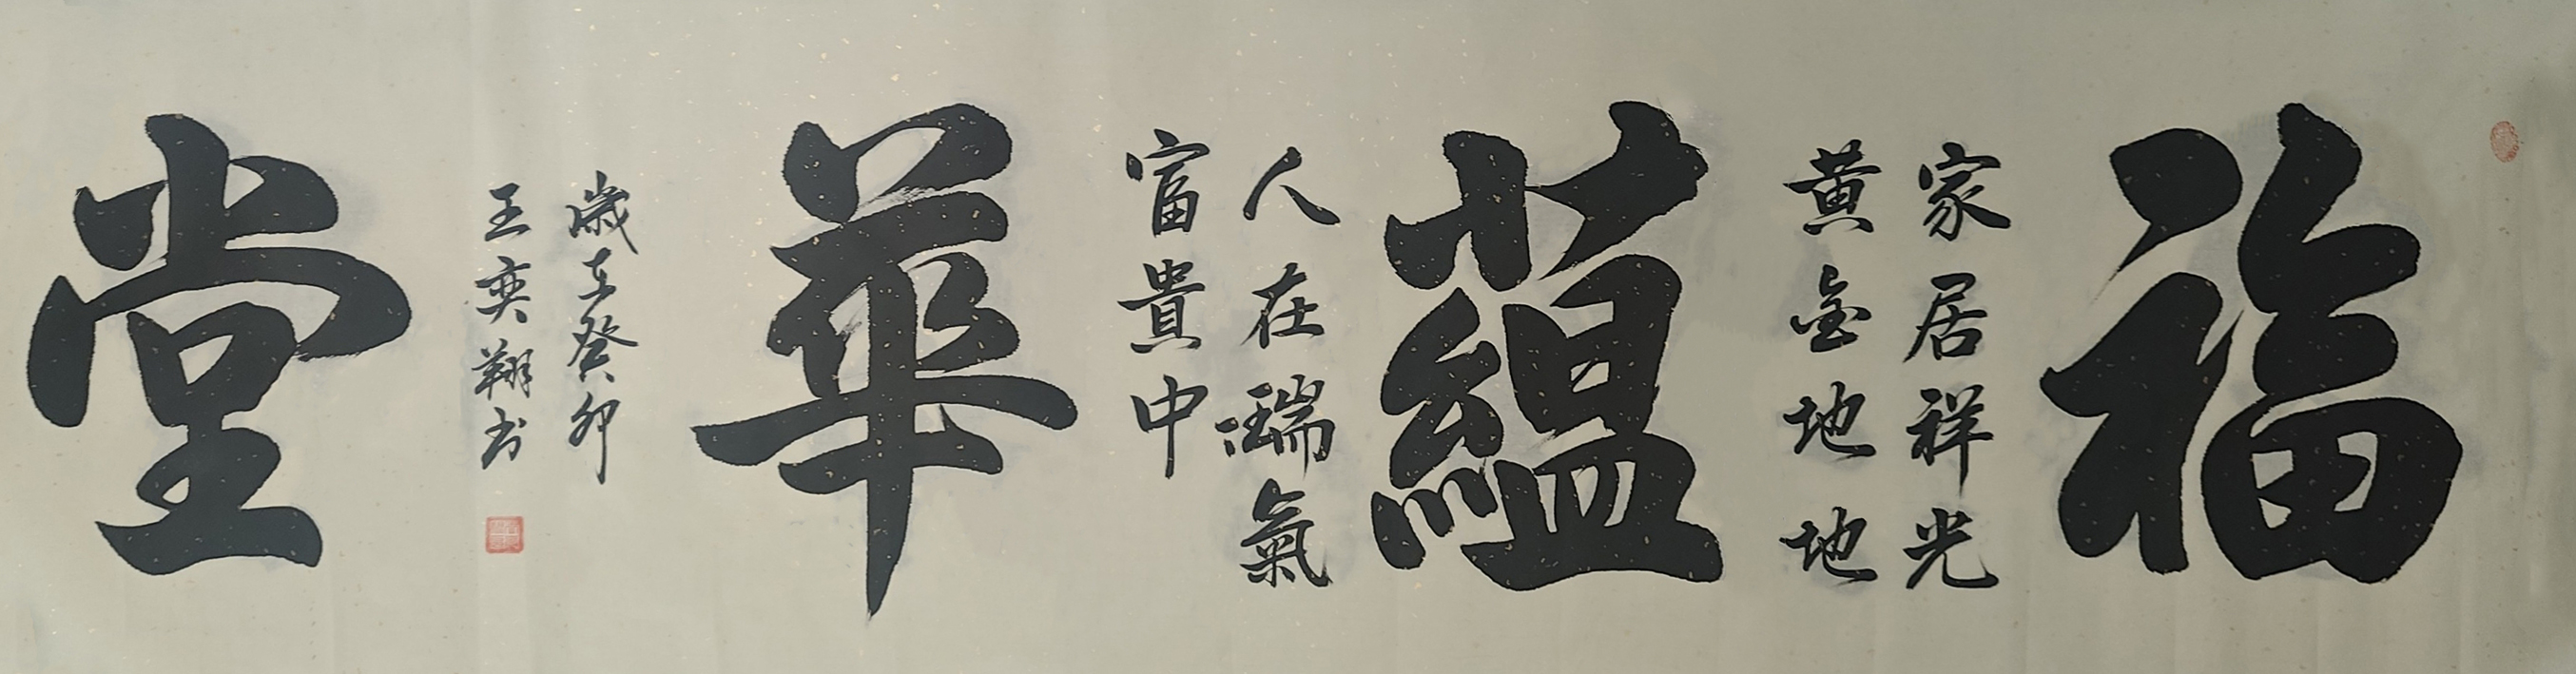 福
家居祥光
黄金地地
蘊
人在瑞氣
富貴中
華
歲在癸卯
王奕翔书
堂